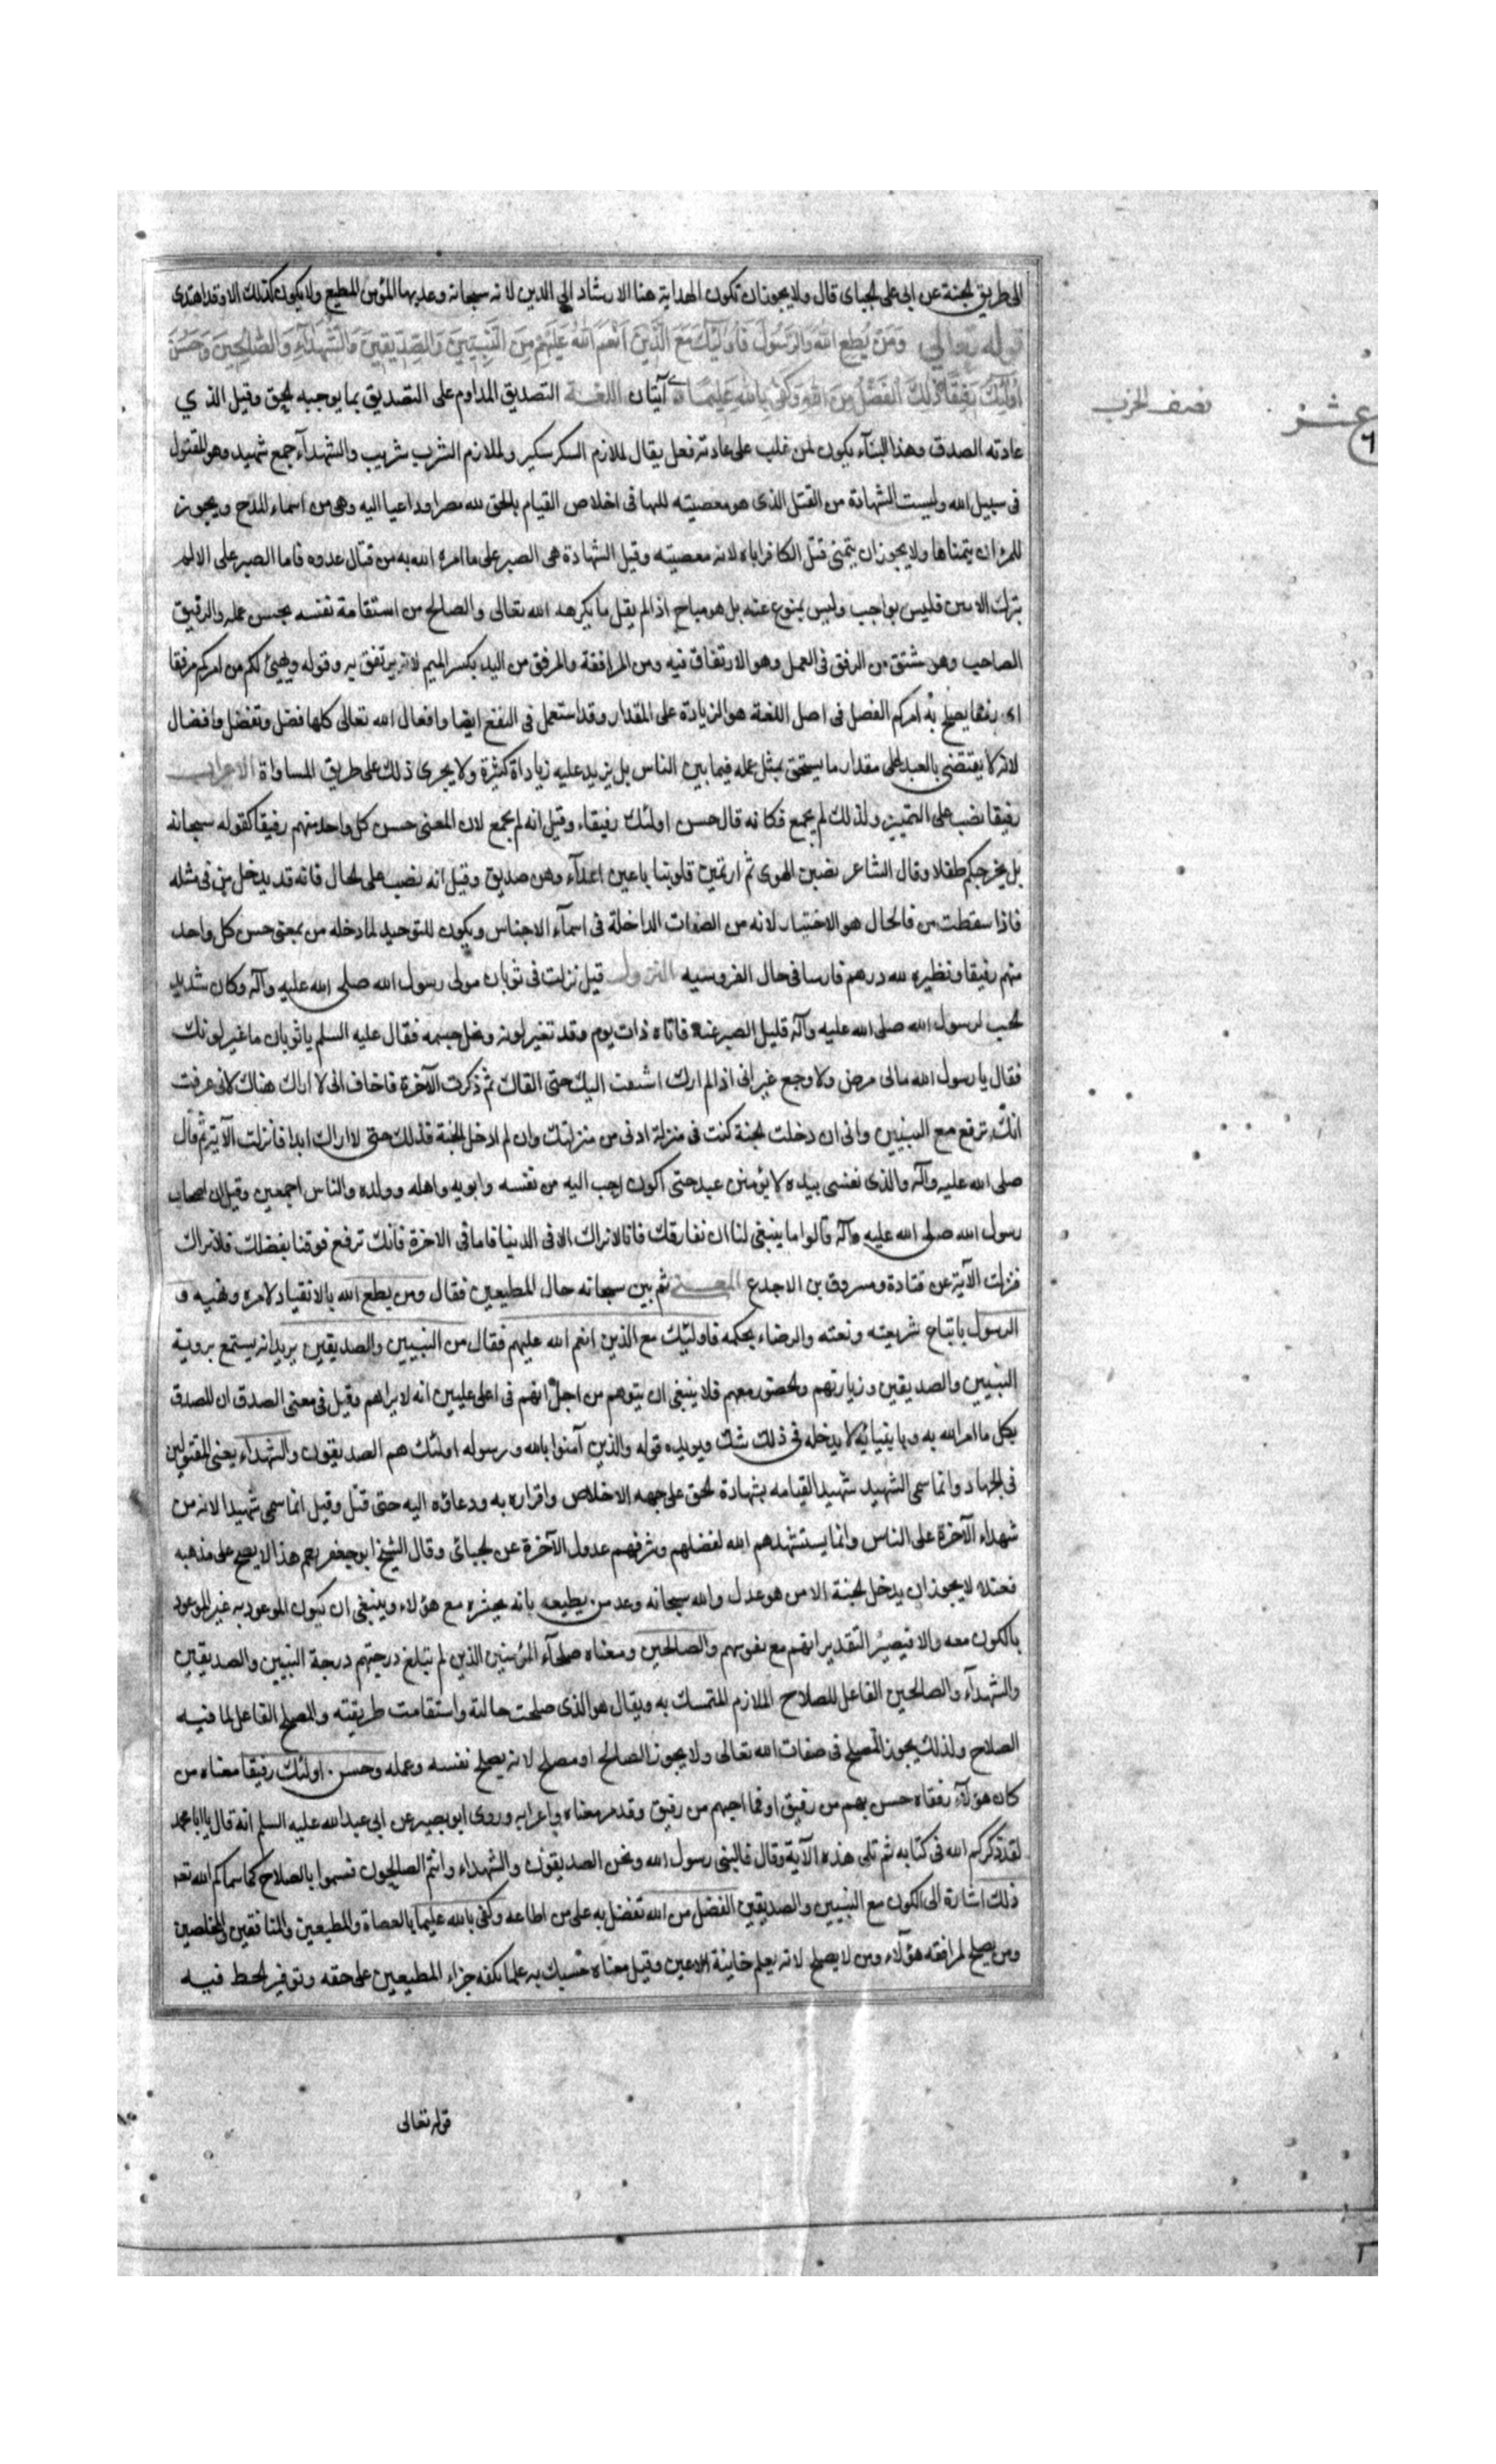 الى طريق الجنة عن ابي على الجباى قال ولا يجوز ان تكون الهداية هنا الارشاد الى الدين لانه سبحانه وعد بها المؤمن المطيع ولا يكون كذلك الا وقد اهتدى
قوله تعالى وَمَنْ يُطِعِ اللهَ وَالرَّسُولَ فَأُولَئِكَ مَعَ الَّذِينَ أَنْعَمَ اللهُ عَلَيْهِمْ مِنَ النَّبِيِّينَ وَالصِّدِّيقِينَ وَالشُّهَدَآءِ وَالصَّالِحِينَ وَحَسُنَ
أُولَئِكَ رَفِيقًا ذَلِكَ الْفَضْلُ مِنَ اللهِ وَكَفَى بِاللهِ عَلِيمًا آيتان اللغة التصديق المداوم على التصديق بما يوجبه الحق وقيل الذي
عادته الصدق وهذا البنآء يكون لمن غلب على عادته فعل يقال لملازم السكر سكير ولملازم الشرب شريب والشهدآء جمع شهيد وهو المقتول
فى سبيل الله وليست الشهادة من القتل الذى هو معصيته للنها فى اخلاص القيام بالحق لله مصرا وداعيا اليه وهى من اسماء المدح ويجوز
للمرء ان يتمناها ولا يجوز ان يتمنى قتل الكافر اياه لانه معصيته وقيل الشهادة هى الصبر على ما امره الله به من قتال عدوه فاما الصبر على الالم
بترك الانين فليس بواجب وليس بمنوع عنه بل هو مباح اذا لم يقل ما يكرهه الله تعالى والصالح من استقامة نفسه بحسن عمله والرفيق
الصاحب وهو مشتق من الرفق فى العمل وهو الارتفاق فيه ومن المرافقة والمرفق من اليد بكسر الميم لانه يرتفق به وقوله ويهيئ لكم من امركم مرفقا
اى رفقا يصلح به امركم الفضل فى اصل اللغة هو الزيادة على المقدار وقد استعمل فى النفع ايضا وافعال الله تعالى كلها فضل وتفضل وافضال
لانه لا يقتضى بالعبد على مقدار ما يستحق بمثل عمله فيما بين الناس بل يزيد عليه زياداة كثيرة ولا يجرى ذلك على طريق المساواة الاعراب
رفيقا نصب على التميز ولذلك لم يجمع فكانه قال حسن اولئك رفيقاء وقيل انه لم يجمع لان المعنى حسن كل واحد منهم رفيقا كقوله سبحانه
بل يخرجكم طفلا وقال الشاعر نصبن الهوى ثم ارتمين قلوبنا باعين اعدآء وهن صديق وقيل انه نصب على الحال فانه قد يدخل من فى مثله
فاذا سقطت من فالحال هو الاختيار لانه من الصفات الداخلة فى اسمآء الاجناس ويكون للتوحيد لما دخله من بمعنى حسن كل واحد
منهم رفيقا ونظيره لله درهم فارسا فى حال الفروسيه النزول قيل نزلت فى ثوبان مولى رسول الله صلى الله عليه وآله وكان شديد
الحب لرسول الله صلى الله عليه وآله قليل الصبر عنه فاتاه ذات يوم وقد تغير لونه ونحل جسمه فقال عليه السلم يا ثوبان ما غير لونك
فقال يا رسول الله مالى مرض ولا وجع غير انى اذا لم ارك اشتقت اليك حتى القاك ثم ذكرت الآخرة فاخاف انى لا اراك هناك لانى عرفت
انك ترفع مع النبيين وانى ان دخلت الجنة كنت فى منزلة ادنى من منزلتك وان لم ادخل الجنة فذلك حتى لا اراك ابدا فانزلت الآية ثم قال
صلى الله عليه وآله والذى نفسى بيده لا يؤمنن عبد حتى اكون احب اليه من نفسه وابويه واهله وولده والناس اجمعين وقيل ان اصحاب
رسول الله صلى الله عليه وآله قالوا ما ينبغى لنا ان نفارقك فانا لا نراك الا فى الدنيا فاما فى الاخرة فانك ترفع فوقنا بفضلك فلا نراك
فنزلت الآية عن قتادة ومسروق بن الاجدع المعنى ثم بين سبحانه حال المطيعين فقال ومن يطع الله بالانقياد لامره ونهيه و
الرسول باتباع شريعته ونعته والرضاء بحكمه فاولئك مع الذين انعم الله عليهم فقال من النبيين والصديقين يريد انه يستمع بروية
النبيين والصديقين وزيارتهم والحضور معهم فلا ينبغى ان يتوهم من اجل انهم فى اعلى عليين انه لا يراهم وقيل فى معنى الصدق ان المصدق
بكل ما امر الله به وبانبيائه لا يدخله فى ذلك شك ويويده قوله والذين آمنوا بالله ورسوله اولئك هم الصديقون والشهداء يعنى المقتولين
فى الجهاد وانما سمى الشهيد شهيدا لقيامه بشهادة الحق على جهه الاخلاص واقراره به ودعاؤه اليه حتى قتل وقيل انما سمى شهيدا لانه من
شهداء الآخرة على الناس وانما يستشهدهم الله لفضلهم وشرفهم عدول الآخرة عن الجبائى وقال الشيخ ابو جعفر رحم هذا لا يصح على مذهبه
فعنده لا يجوز ان يدخل الجنة الا من هو عدل والله سبحانه وعد من يطيعه بانه يحشره مع هؤلاء وينبغى ان يكون الموعود به غير الموعود
بالكون معه والا فيصير التقدير انهم مع نفوسهم والصالحين ومعناه صلحآء المؤمنين الذين لم تبلغ درجتهم درجة النبيين والصديقين
والشهدآء والصالحين الفاعل للصلاح الملازم المتمسك به ويقال هو الذى صلحت حالته واستقامت طريقته والمصلح الفاعل لما فيه
الصلاح ولذلك يجوز المصلح فى صفات الله تعالى ولا يجوز الصالح او مصلح لانه يصلح نفسه وعمله وحسن اولئك رفيقا معناه من
كان هؤلآء رفقاه حسن بهم من رفيق او فما احبهم من رفيق وقد مر معناه فى اعرابه وروى ابو بصير عن ابى عبد الله عليه السلم انه قال يا ابا محمد
لقد ذكركم الله فى كتابه ثم تلى هذه الآية وقال فالنبى رسول الله ونحن الصديقون والشهداء وانتم الصالحون فتسموا بالصلاح كما سماكم الله تعه
ذلك اشارة الى الكون مع النبيين والصديقين الفضل من الله تفضل به على من اطاعه وكفى بالله عليما بالعصاة والمطيعين والمنافقين والمخلصين
ومن يصلح لمرافقه هؤلآء ومن لا يصلح لانه يعلم خاينة الاعين وقيل معناه حسبك به علما بكفه جزاء المطيعين على حقه وتوفير الحظ فيه
نصف الحزب
عشر
٦
قوله تعالى